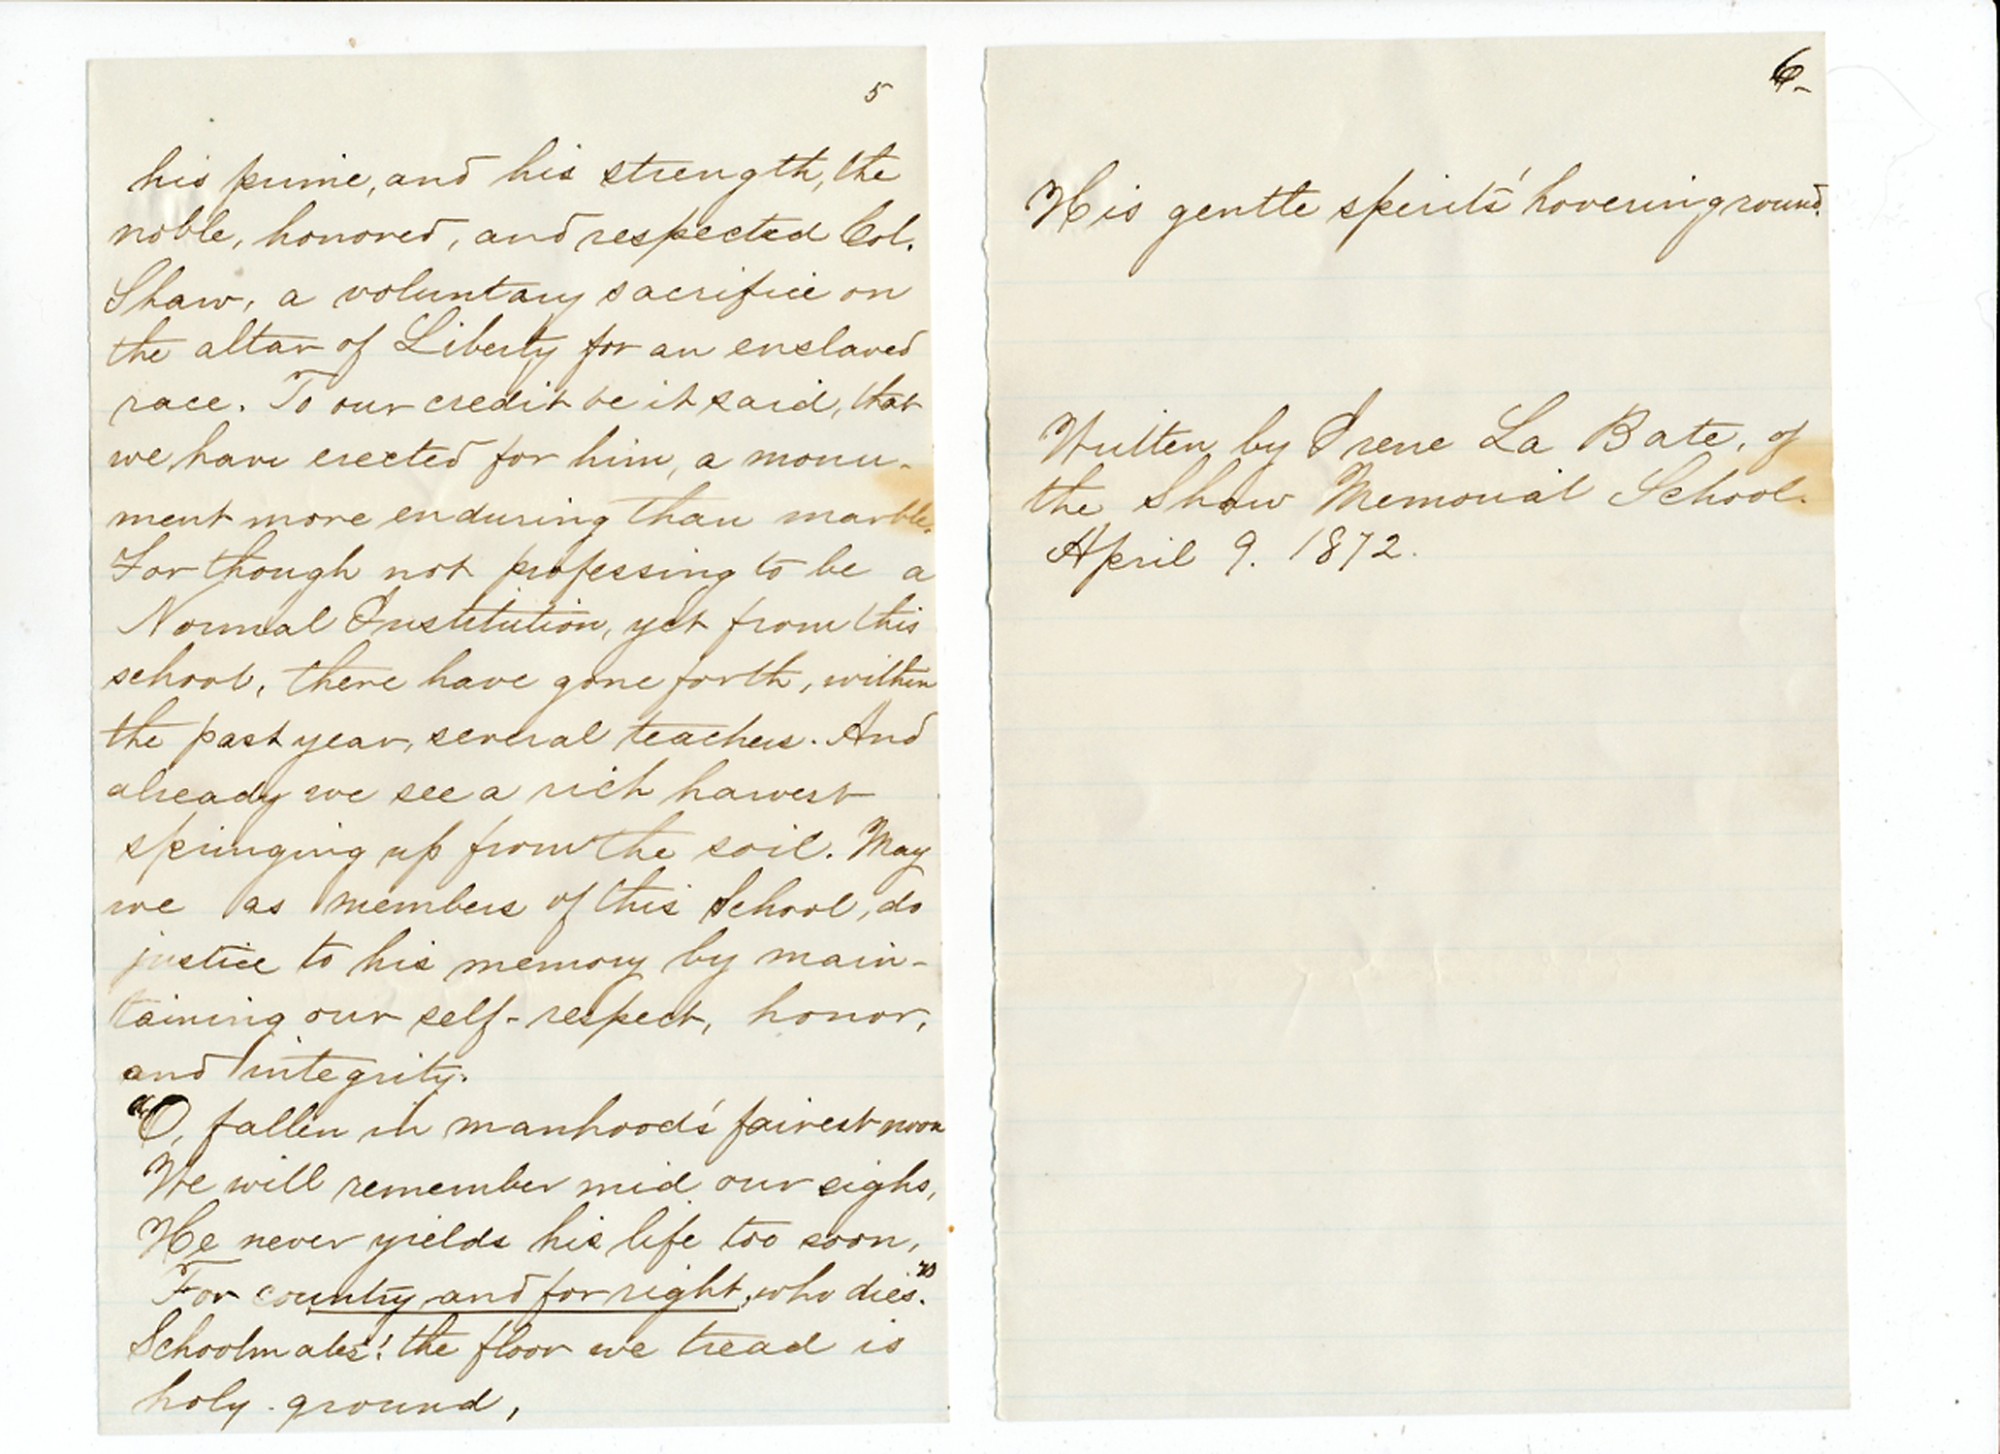 5
his prime, and his strength, the
noble, honored, and respected Col.
Shaw, a voluntary sacrifice on
the altar of Liberty for an enslaved
race. To our credit be it said, that
we have erected for him, a monu-
ment more enduring than marble.
For though not professing to be a
Normal Institution, yet from this
school, there have gone forth, within
the past year, several teachers. And
already we see a rich harvest
springing up from the soil. May
we as members of this School, do
justice to his memory by main-
taining our self-respect, honor,
and integrity.
"O, fallen in manhood's fairest noon
We will remember mid our sighs,
He never yields his life too soon,
For country and for right, who dies."
Schoolmates! the floor we tread is
holy ground,
6-
His gentle spirit's hovering round.
Written by Irene La Bate, of
the Shaw Memorial School.
April 9. 1872.